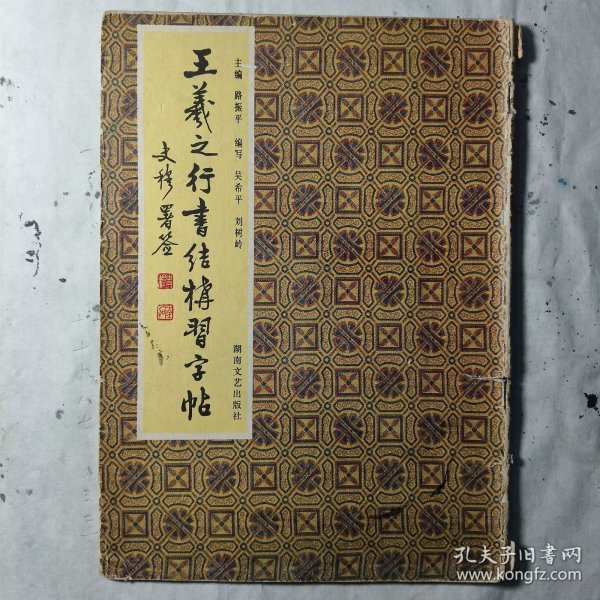 王羲之行書结構習字帖
文稼署签
主编 路振平 编写 吴希平 刘树岭
湖南文艺出版社
孔夫子旧書网
www.kongfz.com